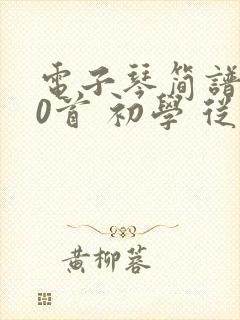 電子琴简譜
0首 初學 從
黄柳蓉